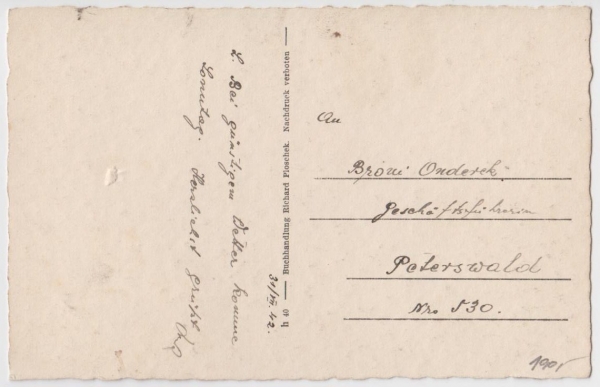 31/VII.42.
L. Bei günstigem Wetter komme
Sonntag. Herzlichst grüßt
h 40 — Buchhandlung Richard Ploschek. Nachdruck verboten —
An
Broni Onderek
Geschäftsführerin
Peterswald
Nro 530.
190,-